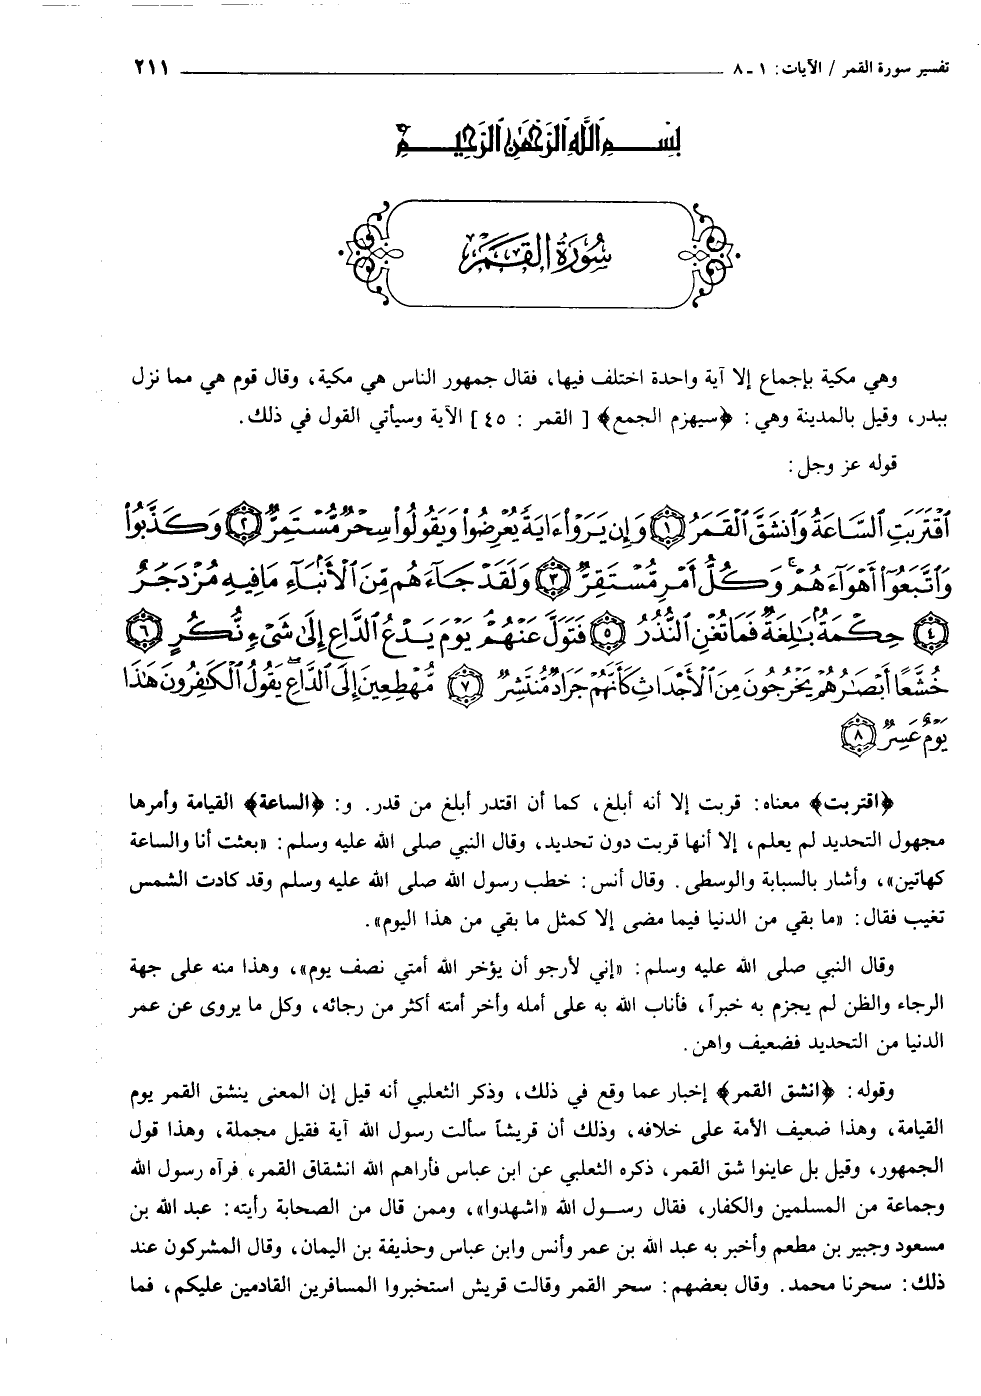 تفسير سورة القمر / الآيات: ١ ـ ٨ ٢١١
بِسْمِ اللَّهِ الرَّحْمَٰنِ الرَّحِيمِ
سُورَةُ القَمَر
وهي مكية بإجماع إلا آية واحدة اختلف فيها، فقال جمهور الناس هي مكية، وقال قوم هي مما نزل
ببدر، وقيل بالمدينة وهي: ﴿سيهزم الجمع﴾ [ القمر : ٤٥ ] الآية وسيأتي القول في ذلك.
قوله عز وجل:
ٱقْتَرَبَتِ ٱلسَّاعَةُ وَٱنشَقَّ ٱلْقَمَرُ ﴿١﴾ وَإِن يَرَوْا۟ ءَايَةً يُعْرِضُوا۟ وَيَقُولُوا۟ سِحْرٌ مُّسْتَمِرٌّ ﴿٢﴾ وَكَذَّبُوا۟
وَٱتَّبَعُوٓا۟ أَهْوَآءَهُمْ ۚ وَكُلُّ أَمْرٍ مُّسْتَقِرٌّ ﴿٣﴾ وَلَقَدْ جَآءَهُم مِّنَ ٱلْأَنۢبَآءِ مَا فِيهِ مُزْدَجَرٌ
﴿٤﴾ حِكْمَةٌۢ بَٰلِغَةٌ ۖ فَمَا تُغْنِ ٱلنُّذُرُ ﴿٥﴾ فَتَوَلَّ عَنْهُمْ ۘ يَوْمَ يَدْعُ ٱلدَّاعِ إِلَىٰ شَىْءٍ نُّكُرٍ ﴿٦﴾
خُشَّعًا أَبْصَٰرُهُمْ يَخْرُجُونَ مِنَ ٱلْأَجْدَاثِ كَأَنَّهُمْ جَرَادٌ مُّنتَشِرٌ ﴿٧﴾ مُّهْطِعِينَ إِلَى ٱلدَّاعِ ۖ يَقُولُ ٱلْكَٰفِرُونَ هَٰذَا
يَوْمٌ عَسِرٌ ﴿٨﴾
﴿اقتربت﴾ معناه: قربت إلا أنه أبلغ، كما أن اقتدر أبلغ من قدر. و: ﴿الساعة﴾ القيامة وأمرها
مجهول التحديد لم يعلم، إلا أنها قربت دون تحديد، وقال النبي صلى الله عليه وسلم: «بعثت أنا والساعة
كهاتين»، وأشار بالسبابة والوسطى. وقال أنس: خطب رسول الله صلى الله عليه وسلم وقد كادت الشمس
تغيب فقال: «ما بقي من الدنيا فيما مضى إلا كمثل ما بقي من هذا اليوم».
وقال النبي صلى الله عليه وسلم: «إني لأرجو أن يؤخر الله أمتي نصف يوم»، وهذا منه على جهة
الرجاء والظن لم يجزم به خبراً، فأناب الله به على أمله وأخر أمته أكثر من رجائه، وكل ما يروى عن عمر
الدنيا من التحديد فضعيف واهن.
وقوله: ﴿انشق القمر﴾ إخبار عما وقع في ذلك، وذكر الثعلبي أنه قيل إن المعنى ينشق القمر يوم
القيامة، وهذا ضعيف الأمة على خلافه، وذلك أن قريشاً سألت رسول الله آية فقيل مجملة، وهذا قول
الجمهور، وقيل بل عاينوا شق القمر، ذكره الثعلبي عن ابن عباس فأراهم الله انشقاق القمر، فرآه رسول الله
وجماعة من المسلمين والكفار، فقال رسـول الله «اشهدوا»، وممن قال من الصحابة رأيته: عبد الله بن
مسعود وجبير بن مطعم وأخبر به عبد الله بن عمر وأنس وابن عباس وحذيفة بن اليمان، وقال المشركون عند
ذلك: سحرنا محمد. وقال بعضهم: سحر القمر وقالت قريش استخبروا المسافرين القادمين عليكم، فما